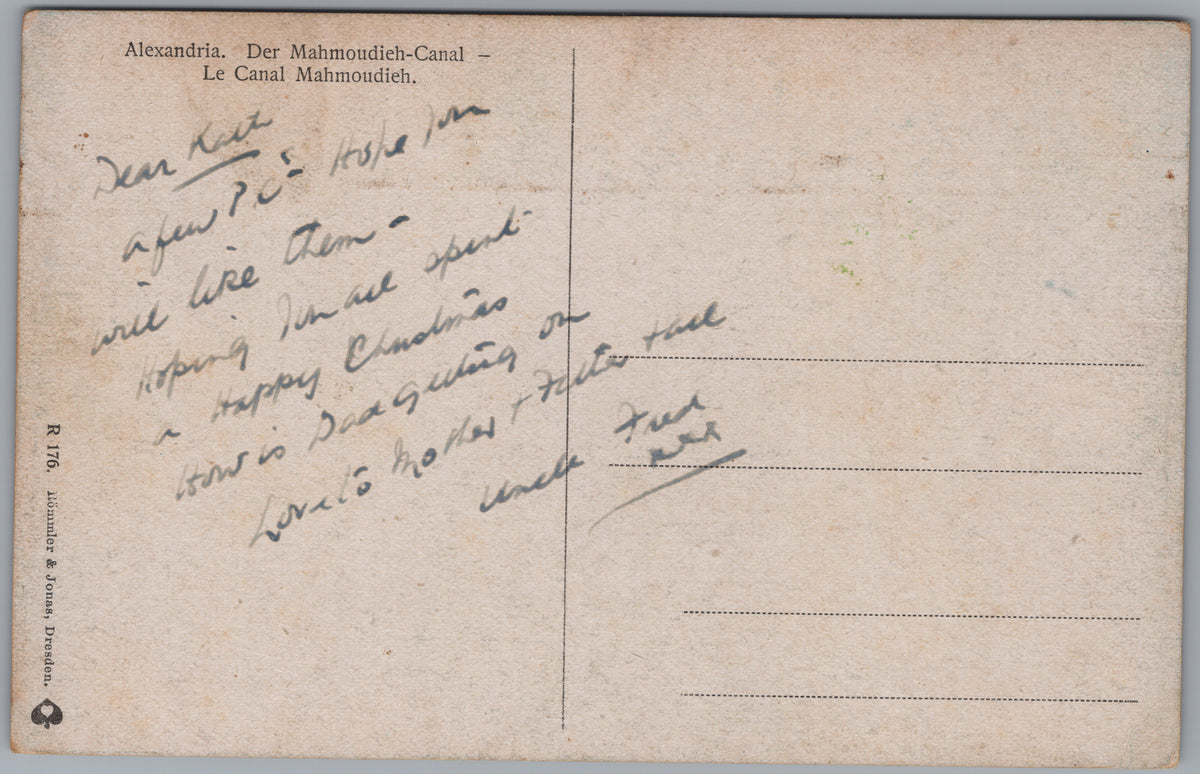 Alexandria. Der Mahmoudieh-Canal –
Le Canal Mahmoudieh.
Dear Kath
a few P.Cs Hope you
will like them –
Hoping you all spent
a Happy Christmas
How is Dad getting on
Love to Mother + Father + all
Uncle Fred
xxx
R 176. Römmler & Jonas, Dresden.